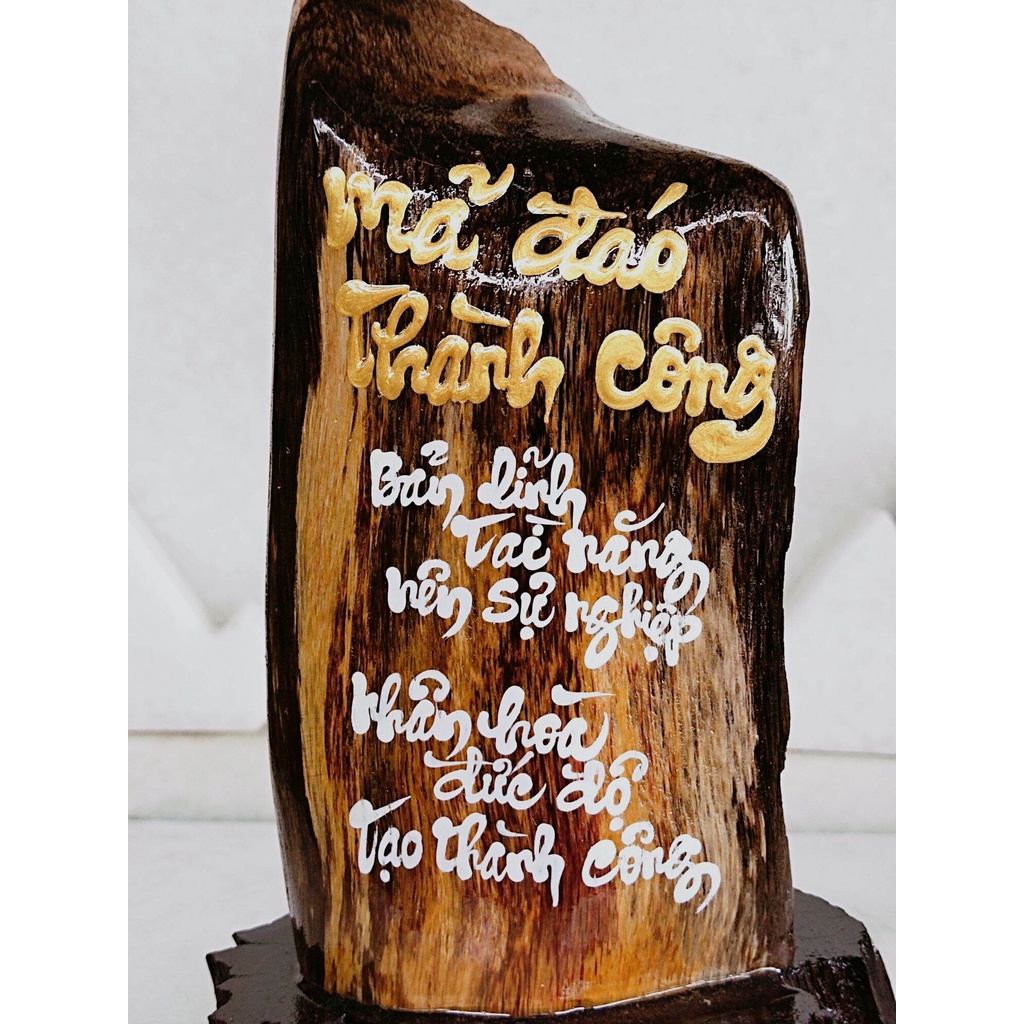 mã đáo
Thành công
Bản lĩnh
Tài năng
nên sự nghiệp
Nhân hoà
đức độ
Tạo thành công